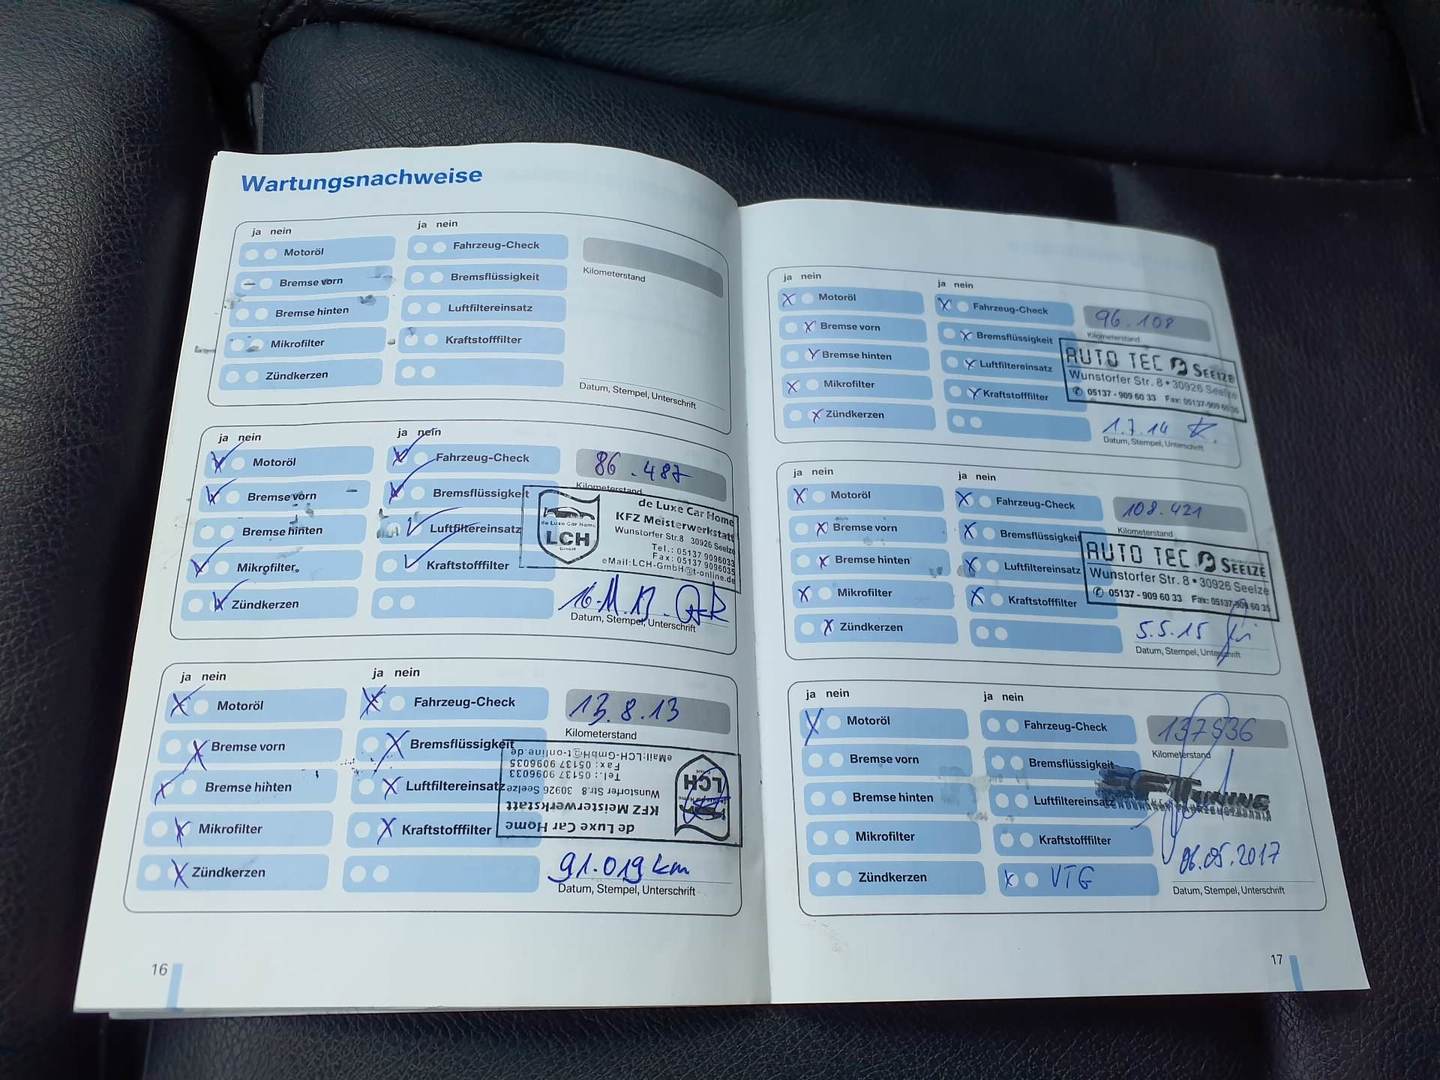 Wartungsnachweise
ja nein
ja nein
Motoröl
Fahrzeug-Check
Bremse vorn
Bremsflüssigkeit
Kilometerstand
Bremse hinten
Luftfiltereinsatz
Mikrofilter
Kraftstofffilter
Zündkerzen
Datum, Stempel, Unterschrift
ja nein
ja nein
Motoröl
Fahrzeug-Check
86.487
Bremse vorn
Bremsflüssigkeit
Kilometerstand
Bremse hinten
Luftfiltereinsatz
Mikrofilter
Kraftstofffilter
Zündkerzen
de Luxe Car Home
LCH
GmbH
de Luxe Car Home
KFZ Meisterwerkstatt
Wunstorfer Str.8 30926 Seelze
Tel.: 05137 9096033
Fax: 05137 9096035
eMail:LCH-GmbH@t-online.de
Datum, Stempel, Unterschrift
ja nein
ja nein
Motoröl
Fahrzeug-Check
13.8.13
Bremse vorn
Bremsflüssigkeit
Kilometerstand
Bremse hinten
Luftfiltereinsatz
Mikrofilter
Kraftstofffilter
Zündkerzen
LCH
de Luxe Car Home
KFZ Meisterwerkstatt
Wunstorfer Str.8 30926 Seelze
Tel.: 05137 9096033
Fax: 05137 9096035
eMail:LCH-GmbH@t-online.de
91.019 km
Datum, Stempel, Unterschrift
16
ja nein
ja nein
Motoröl
Fahrzeug-Check
96.108
Bremse vorn
Bremsflüssigkeit
Kilometerstand
Bremse hinten
Luftfiltereinsatz
Mikrofilter
Kraftstofffilter
Zündkerzen
AUTO TEC SEELZE
Wunstorfer Str. 8 • 30926 Seelze
05137 - 909 60 33 Fax: 05137-909 60 35
1.7.14
Datum, Stempel, Unterschrift
ja nein
ja nein
Motoröl
Fahrzeug-Check
108.421
Bremse vorn
Bremsflüssigkeit
Kilometerstand
Bremse hinten
Luftfiltereinsatz
Mikrofilter
Kraftstofffilter
Zündkerzen
AUTO TEC SEELZE
Wunstorfer Str. 8 • 30926 Seelze
05137 - 909 60 33 Fax: 05137-909 60 35
5.5.15
Datum, Stempel, Unterschrift
ja nein
ja nein
Motoröl
Fahrzeug-Check
Bremse vorn
Bremsflüssigkeit
Kilometerstand
Bremse hinten
Luftfiltereinsatz
Mikrofilter
Kraftstofffilter
Zündkerzen
VTG
TUNING
06.05.2017
Datum, Stempel, Unterschrift
17